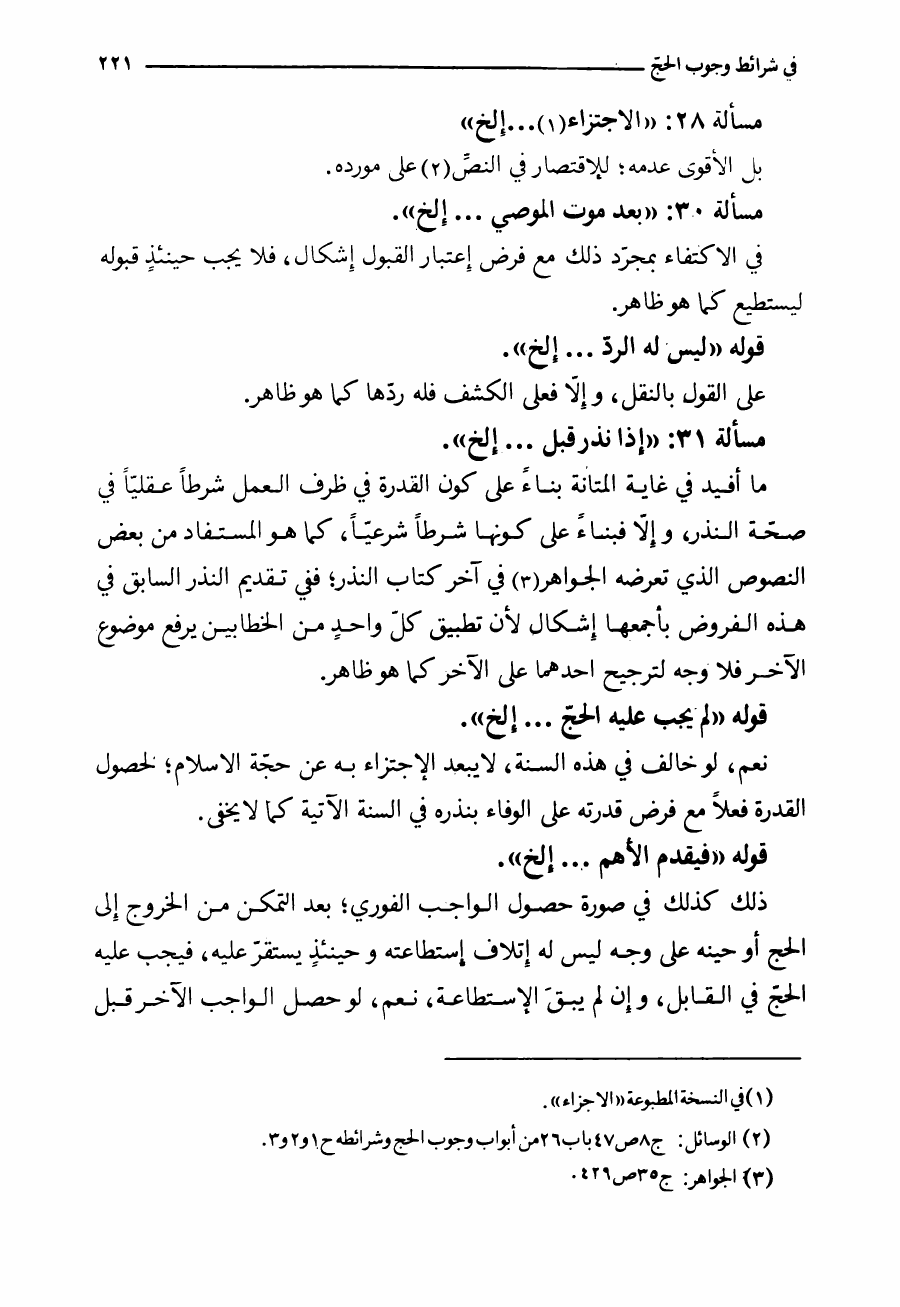 في شرائط وجوب الحجّ ٢٢١
مسألة ٢٨: «الاجتزاء(١)...إلخ»
بل الأقوى عدمه؛ للإقتصار في النصِّ(٢) على مورده.
مسألة ٣٠: «بعد موت الموصي ... إلخ».
في الاكتفاء بمجرّد ذلك مع فرض إعتبار القبول إشكال، فلا يجب حينئذٍ قبوله
ليستطيع كما هو ظاهر.
قوله «ليس له الردّ ... إلخ».
على القول بالنقل، و إلّا فعلى الكشف فله ردّها كما هو ظاهر.
مسألة ٣١: «إذا نذر قبل ... إلخ».
ما أفيد في غاية المتانة بناءً على كون القدرة في ظرف العمل شرطاً عقليّاً في
صحّة النذر، و إلّا فبناءً على كونها شرطاً شرعيّاً، كما هو المستفاد من بعض
النصوص الذي تعرضه الجواهر(٣) في آخر كتاب النذر؛ ففي تقديم النذر السابق في
هذه الفروض بأجمعها إشكال لأن تطبيق كلّ واحدٍ من الخطابين يرفع موضوع
الآخر فلا وجه لترجيح احدهما على الآخر كما هو ظاهر.
قوله «لم يجب عليه الحجّ ... إلخ».
نعم، لو خالف في هذه السنة، لايبعد الإجتزاء به عن حجّة الاسلام؛ لحصول
القدرة فعلاً مع فرض قدرته على الوفاء بنذره في السنة الآتية كما لا يخفى.
قوله «فيقدم الأهم ... إلخ».
ذلك كذلك في صورة حصول الواجب الفوري؛ بعد التمكن من الخروج إلى
الحج أو حينه على وجه ليس له إتلاف إستطاعته و حينئذٍ يستقرّ عليه، فيجب عليه
الحجّ في القابل، و إن لم يبقَ الإستطاعة، نعم، لو حصل الواجب الآخر قبل
(١)في النسخة المطبوعة «الاجزاء».
(٢) الوسائل: ج٨ص٤٧باب٢٦من أبواب وجوب الحج وشرائطه ح١و٢و٣.
(٣) الجواهر: ج٣٥ص٤٢٩.